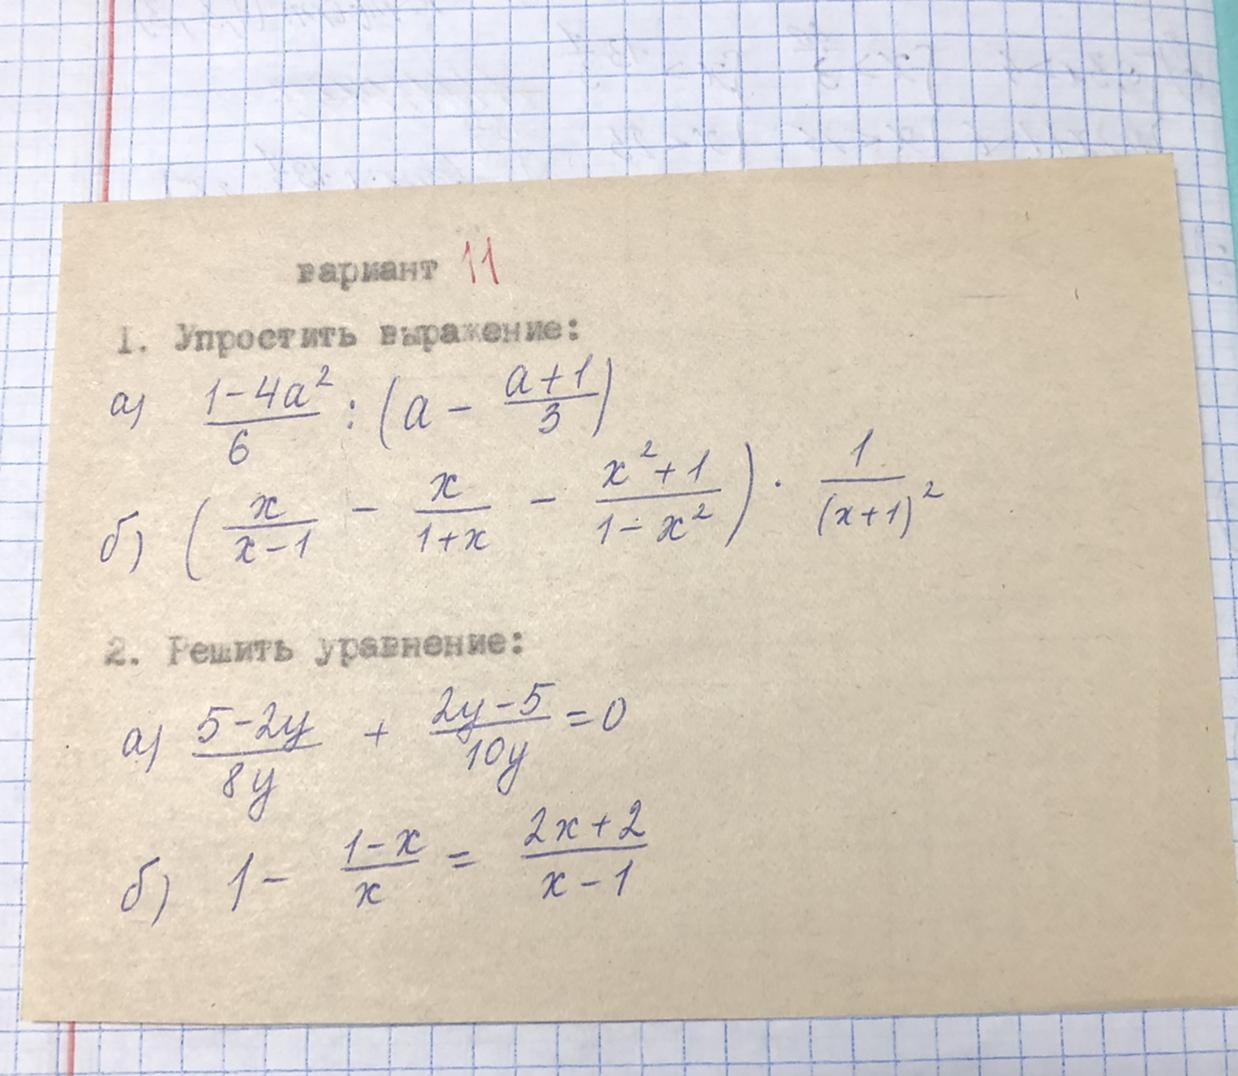 вариант 11
1. Упростить выражение:
а) (1-4a²)/6 : (a - (a+1)/3)
б) (x/(x-1) - x/(1+x) - (x²+1)/(1-x²)) · 1/(x+1)²
2. Решить уравнение:
а) (5-2y)/(8y) + (2y-5)/(10y) = 0
б) 1 - (1-x)/x = (2x+2)/(x-1)